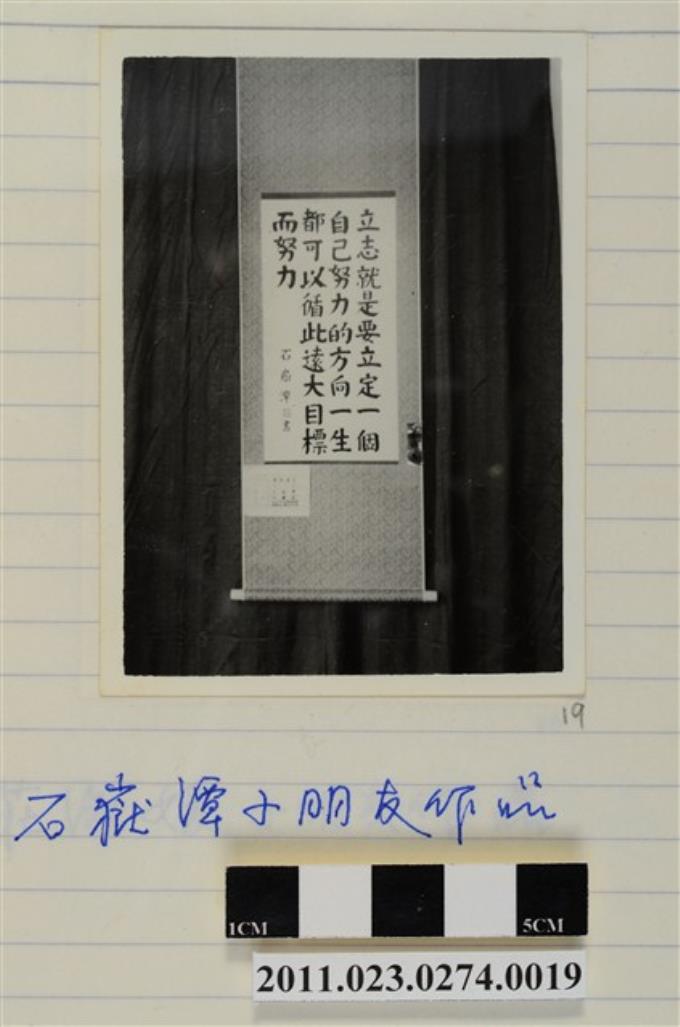 立志就是要立定一個
自己努力的方向一生
都可以循此遠大目標
而努力
19
石嶽潭小朋友作品
1CM 5CM
2011.023.0274.0019